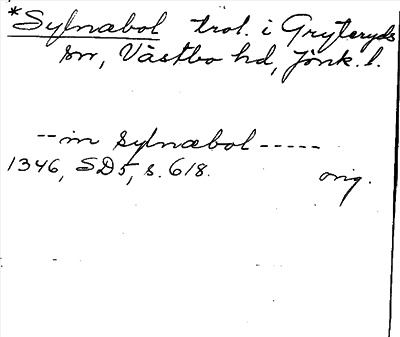 *Sylnabol trol. i Gryteryds
sn, Västbo hd, Jönk. l.
--in sylnabol-----
1346, SD5, s. 618. orig.